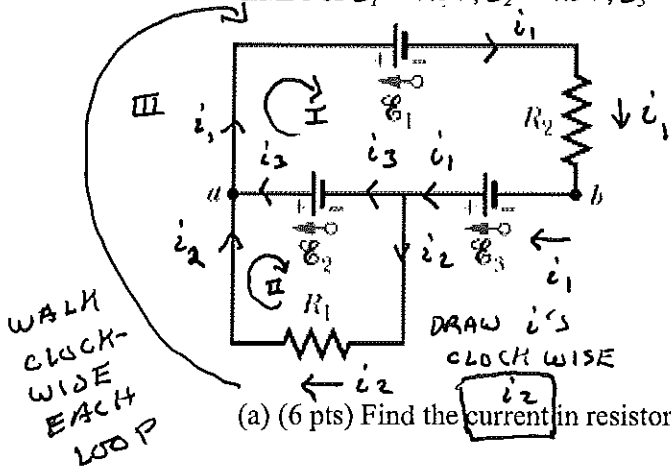 i₁
+ −
III
ℰ₁
I
R₂
↓ i₁
i₁
i₃
i₃
i₁
a
+ −
+ −
b
i₂
ℰ₂
i₂
ℰ₃
i₁
II
R₁
WALK
CLOCK-
WISE
EACH
LOOP
DRAW i's
CLOCKWISE
← i₂
i₂
(a) (6 pts) Find the current in resistor